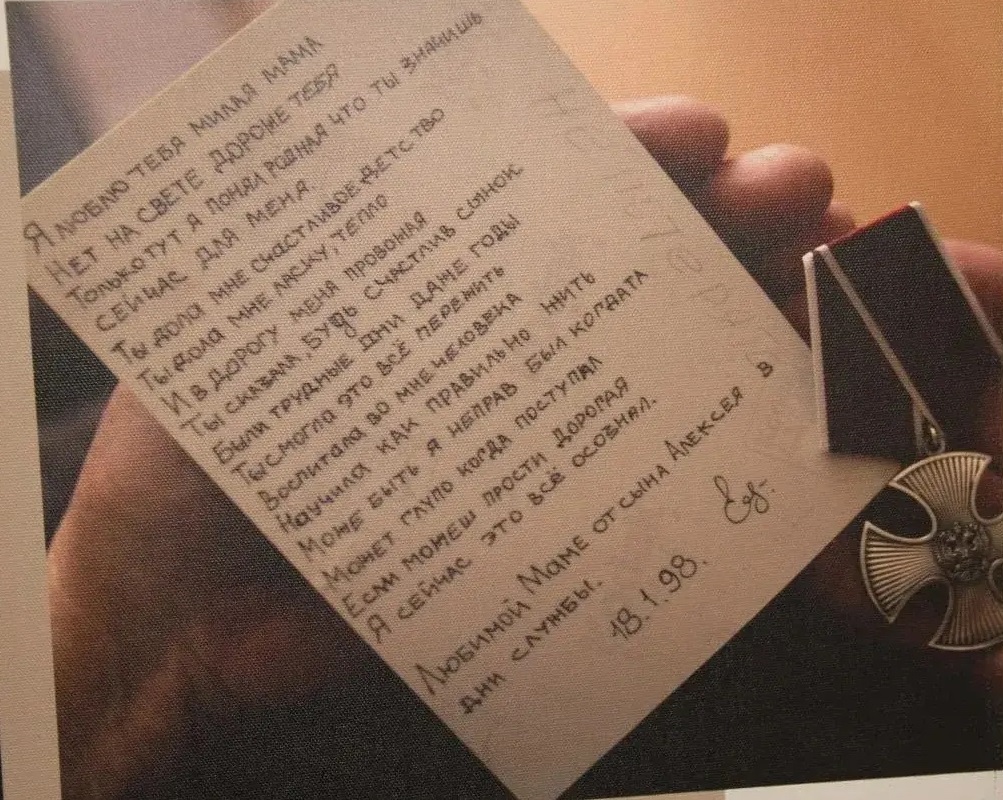 Я люблю тебя милая мама
Нет на свете дороже тебя
Только тут я понял родная что ты значишь
сейчас для меня.
Ты дола мне счастливое детство
Ты дола мне ласку, тепло
И в дорогу меня провожая
Ты сказала, будь счастлив сынок
Были трудные дни даже годы
Ты смогла это всё пережить
Воспитала во мне человека
Научила как правильно жить
Може быть я неправ был когдата
Может глупо когда поступал
Если можеш прости дорогая
Я сейчас это всё осознал.
Любимой Маме от сына Алексея в
дни службы.
18.1.98.